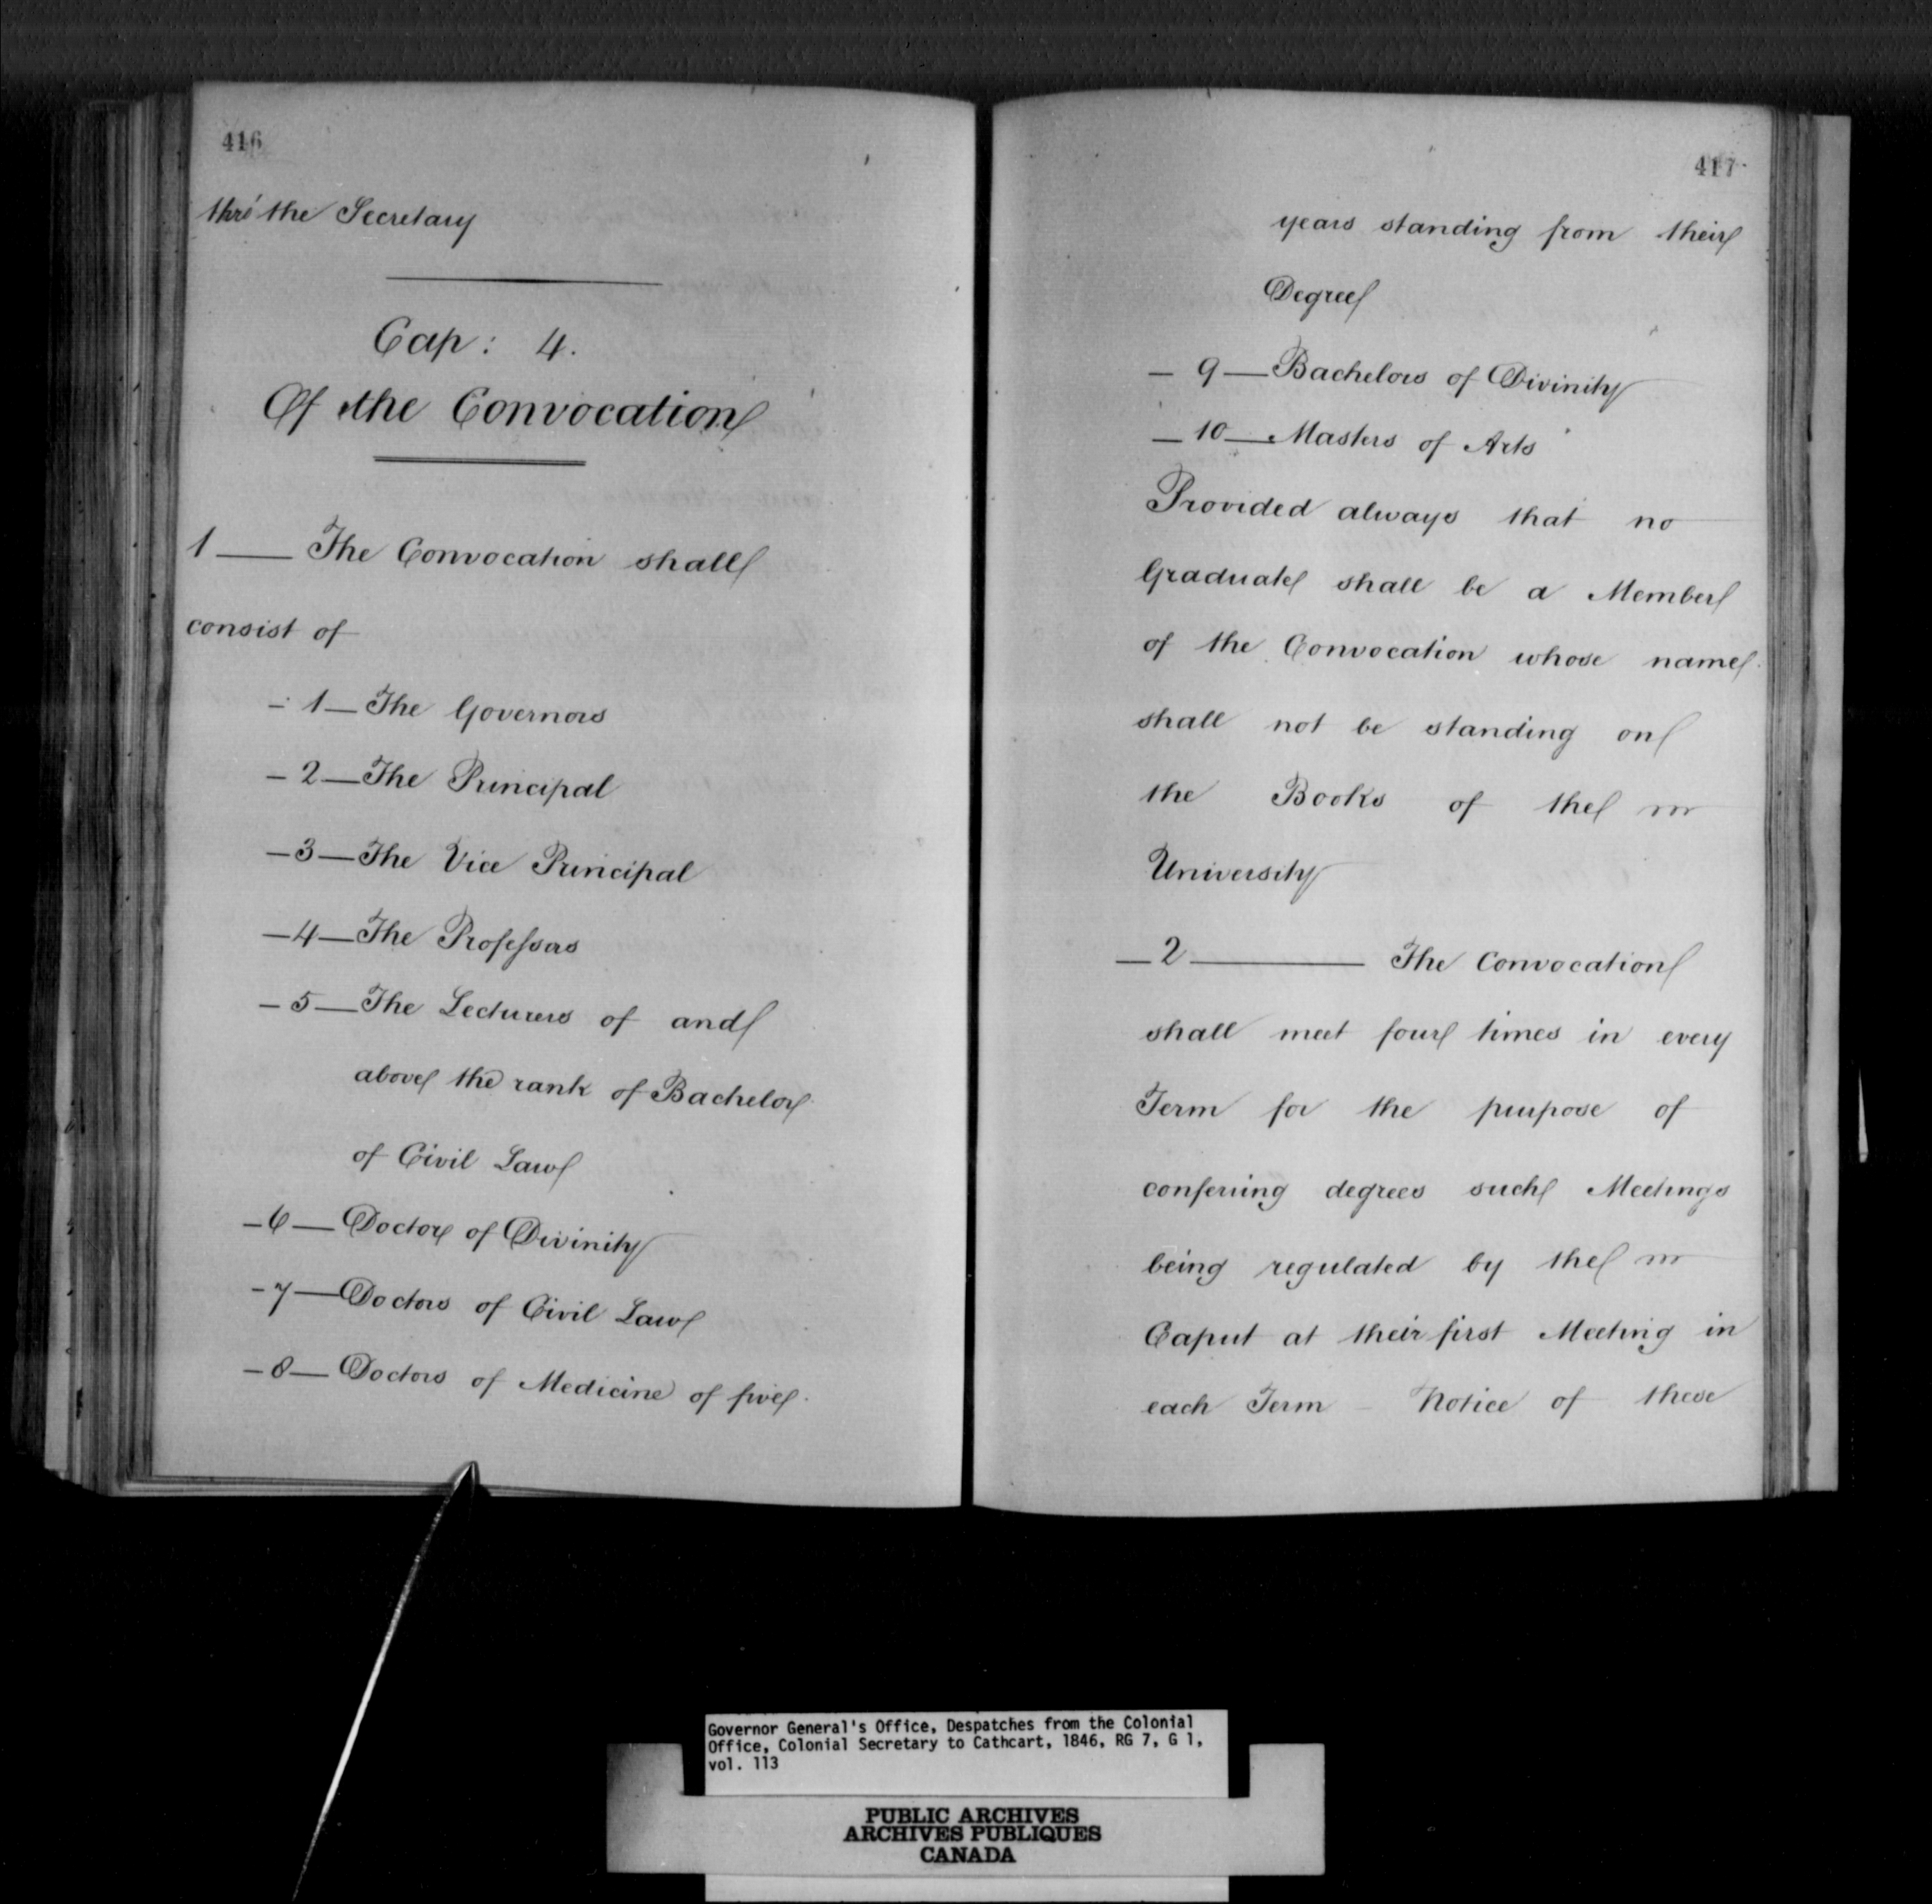 416
thro' the Secretary
Cap: 4.
Of the Convocation
1 — The Convocation shall
consist of
- 1 — The Governors
- 2 — The Principal
- 3 — The Vice Principal
- 4 — The Professors
- 5 — The Lecturers of and
above the rank of Bachelor
of Civil Law
- 6 — Doctor of Divinity
- 7 — Doctors of Civil Law
- 8 — Doctors of Medicine of five
417
years standing from their
Degree
- 9 — Bachelors of Divinity
- 10 — Masters of Arts
Provided always that no
Graduate shall be a Member
of the Convocation whose name
shall not be standing on
the Books of the
University
- 2 — The Convocation
shall meet four times in every
Term for the purpose of
conferring degrees such Meetings
being regulated by the
Caput at their first Meeting in
each Term - Notice of these
Governor General's Office, Despatches from the Colonial
Office, Colonial Secretary to Cathcart, 1846, RG 7, G 1,
vol. 113
PUBLIC ARCHIVES
ARCHIVES PUBLIQUES
CANADA